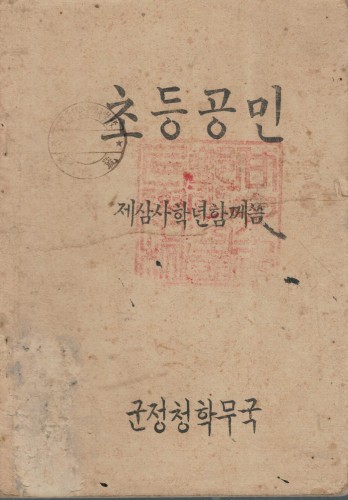 초등공민
제삼사학년함께씀
군정청학무국